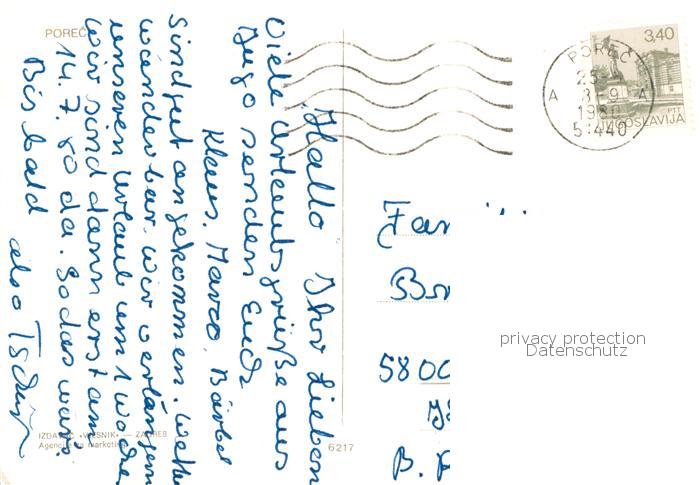 POREČ
Hallo Ihr Lieben
Viele Urlaubsgrüße aus
Jugo senden Euch
Klaus, Marco, Bärbel
Sind gut angekommen. Wetter
wunderbar. Wir verlängern
unseren Urlaub um 1 Woche
Wir sind dann erst am
14.7. so da. So das wars.
Bis bald
also Tschüß
IZDAVAČ «VJESNIK» — ZAGREB
Agencija za marketing
6217
3,40
PTT
JUGOSLAVIJA
POREČ
25
A 8-9 A
1980
51440
Fam
Br
5800
B.
privacy protection
Datenschutz